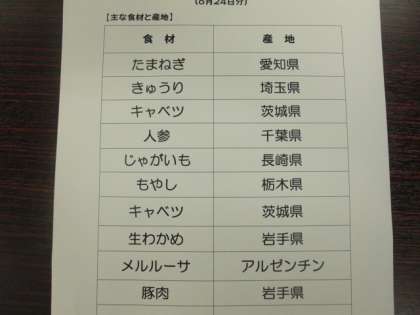 (6月24日分)
【主な食材と産地】
食 材 産 地
たまねぎ 愛知県
きゅうり 埼玉県
キャベツ 茨城県
人参 千葉県
じゃがいも 長崎県
もやし 栃木県
キャベツ 茨城県
生わかめ 岩手県
メルルーサ アルゼンチン
豚肉 岩手県